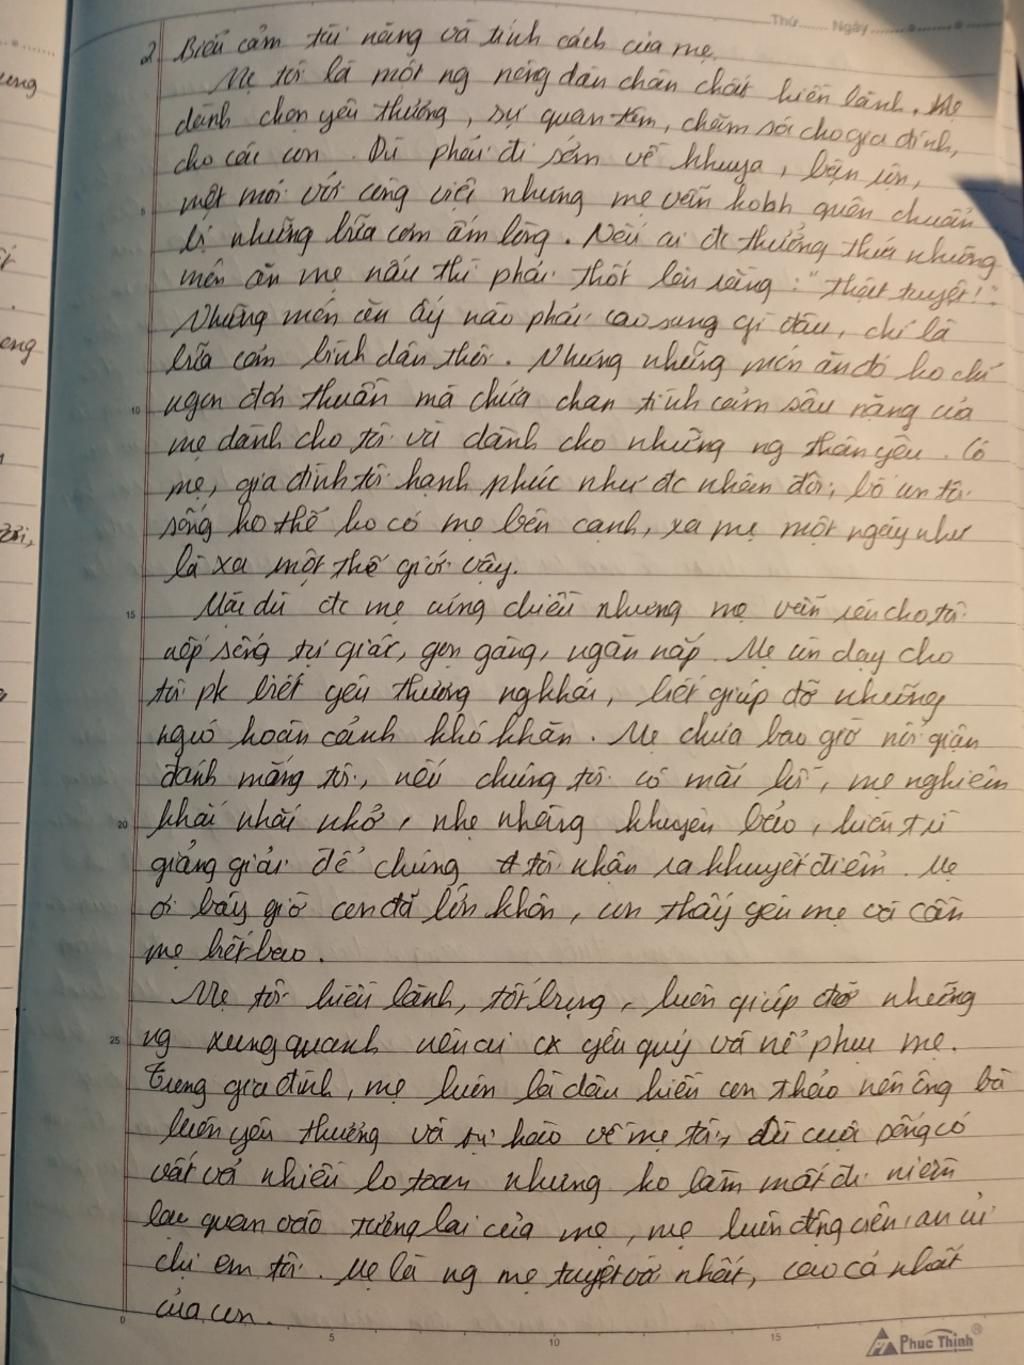 Thứ...... Ngày
2 Biểu cảm tài năng và tính cách của mẹ.
Mẹ tôi là một ng nông dân chân chất hiền lành. Mẹ
dành chọn yêu thương, sự quan tâm, chăm sóc cho gia đình,
cho các con. Dù phải đi sớm về khuya, bận rộn,
mệt mỏi với công việc nhưng mẹ vẫn quên chuẩn
bị những bữa cơm ấm lòng. Nếu ai đc thưởng thức những
món ăn mẹ nấu thì phải thốt lên rằng: "thật tuyệt!".
Những món ăn ấy nào phải cao sang gì đâu, chỉ là
bữa cơm bình dân thôi. Nhưng những món ăn đó ko chỉ
ngon đơn thuần mà chứa chan tình cảm sâu nặng của
mẹ dành cho tôi và dành cho những ng thân yêu. Có
mẹ, gia đình tôi hạnh phúc như đc nhân đôi, bố con tôi
sống ko thể ko có mẹ bên cạnh, xa mẹ một ngày như
là xa một thế giới vậy.
Mặc dù đc mẹ cưng chiều nhưng mẹ vẫn rèn cho tôi
nếp sống tự giác, gọn gàng, ngăn nắp. Mẹ còn dạy cho
tôi pk biết yêu thương ng khác, biết giúp đỡ những
ngườ hoàn cảnh khó khăn. Mẹ chưa bao giờ nổi giận
đánh mắng tôi, nếu chúng tôi có mắc lỗi, mẹ nghiêm
khắc nhắc nhở, nhẹ nhàng khuyên bảo, hiền từ
giảng giải để chúng tôi nhận ra khuyết điểm. Mẹ
ơi bây giờ con đã lớn khôn, con thấy yêu mẹ và cần
mẹ biết bao.
Mẹ tôi hiền lành, tốt bụng, luôn giúp đỡ những
ng xung quanh nên ai cx yêu quý và nể phục mẹ.
Trong gia đình, mẹ luôn là dâu hiền con thảo nên ông bà
luôn yêu thương và tự hào về mẹ tôi, dù cuộc sống có
vất vả nhiều lo toan nhưng ko làm mất đi niềm
lạc quan vào tương lai của mẹ, mẹ luôn động viên, an ủi
chị em tôi. Mẹ là ng mẹ tuyệt vời nhất, cao cả nhất
của con.
5
10
15
20
25
0 5 10 15
Phuc Thinh